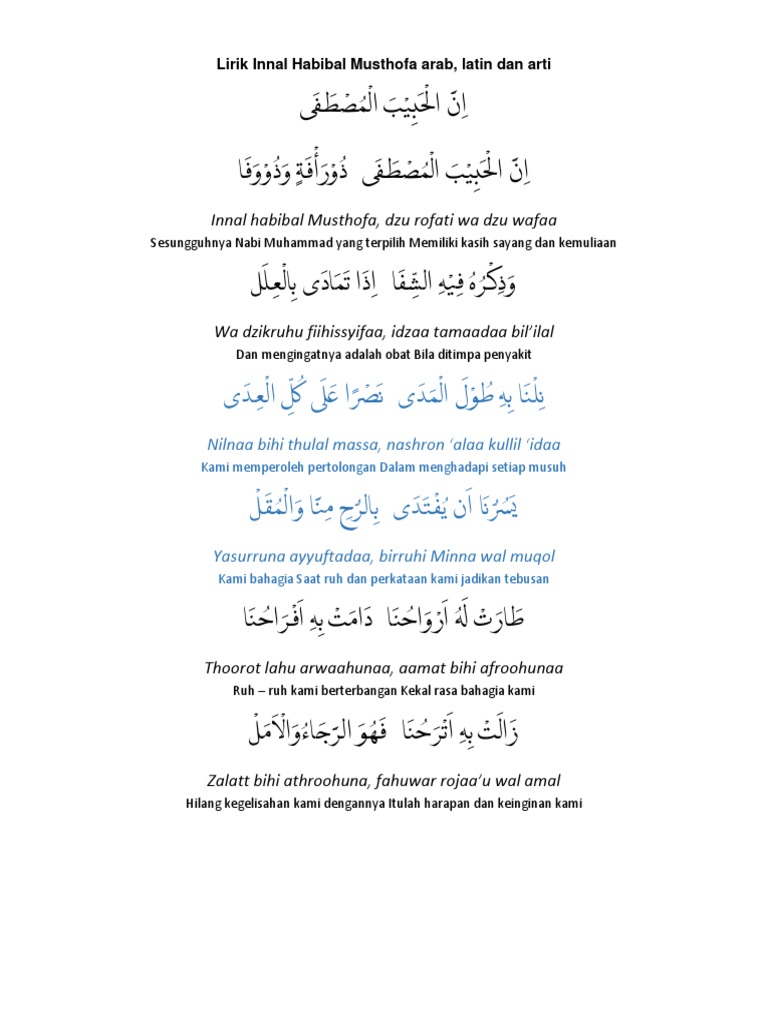 Lirik Innal Habibal Musthofa arab, latin dan arti
اِنَّ الْحَبِيْبَ الْمُصْطَفَى
اِنَّ الْحَبِيْبَ الْمُصْطَفَى ذُوْرَأْفَةٍ وَذُوْوَفَا
Innal habibal Musthofa, dzu rofati wa dzu wafaa
Sesungguhnya Nabi Muhammad yang terpilih Memiliki kasih sayang dan kemuliaan
وَذِكْرُهُ فِيْهِ الشِّفَا اِذَا تَمَادَى بِالْعِلَل
Wa dzikruhu fiihissyifaa, idzaa tamaadaa bil’ilal
Dan mengingatnya adalah obat Bila ditimpa penyakit
نِلْنَا بِهِ طُوْلَ الْمَدَى نَصْرًا عَلَى كُلِّ الْعِدَى
Nilnaa bihi thulal massa, nashron ‘alaa kullil ‘idaa
Kami memperoleh pertolongan Dalam menghadapi setiap musuh
يَسُرُّنَا اَن يُفْتَدَى بِالرُّحِ مِنَّا وَالْمُقَلْ
Yasurruna ayyuftadaa, birruhi Minna wal muqol
Kami bahagia Saat ruh dan perkataan kami jadikan tebusan
طَارَتْ لَهُ اَرْوَاحُنَا دَامَتْ بِهِ اَفْرَاحُنَا
Thoorot lahu arwaahunaa, aamat bihi afroohunaa
Ruh – ruh kami berterbangan Kekal rasa bahagia kami
زَالَتْ بِهِ اَتْرَحُنَا فَهُوَ الرَّجَاءُوَالْاَمَلْ
Zalatt bihi athroohuna, fahuwar rojaa’u wal amal
Hilang kegelisahan kami dengannya Itulah harapan dan keinginan kami